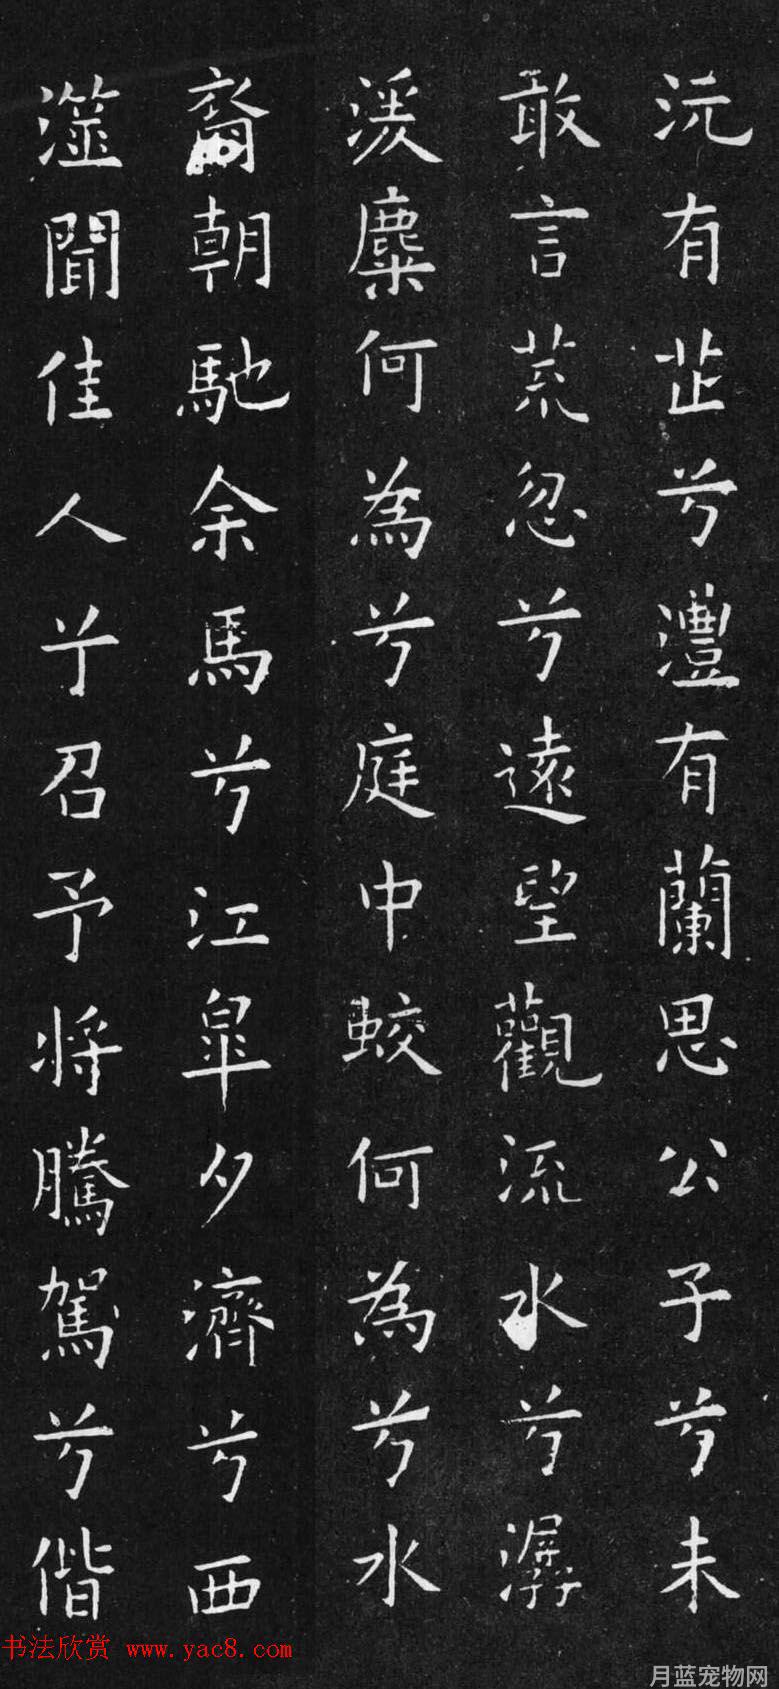 沅有芷兮澧有蘭思公子兮未
敢言荒忽兮遠望觀流水兮潺
湲麋何為兮庭中蛟何為兮水
裔朝馳余馬兮江皐夕濟兮西
澨聞佳人兮召予將騰駕兮偕
书法欣赏 www.yac8.com
月蓝宠物网